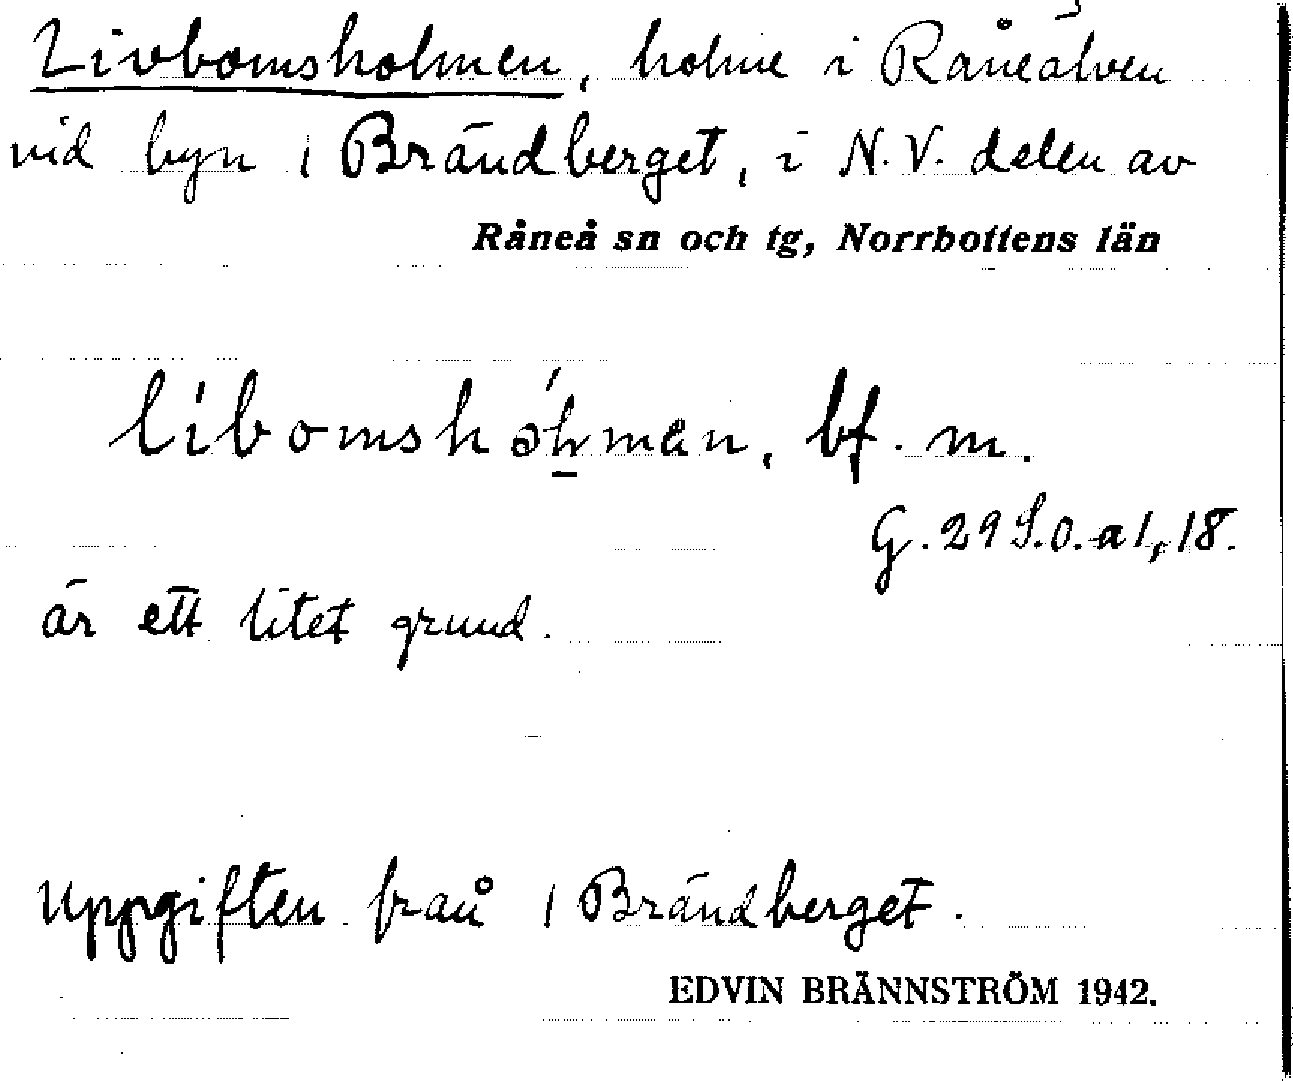 Livbomsholmen, holme i Råneälven
vid byn 1 Brändberget, i N.V. delen av
Råneå sn och tg, Norrbottens län
libomshóḥman, bf. m.
G. 29 S.O. a 1, 18.
är ett litet grund.
Uppgiften från 1 Brändberget.
EDVIN BRÄNNSTRÖM 1942.